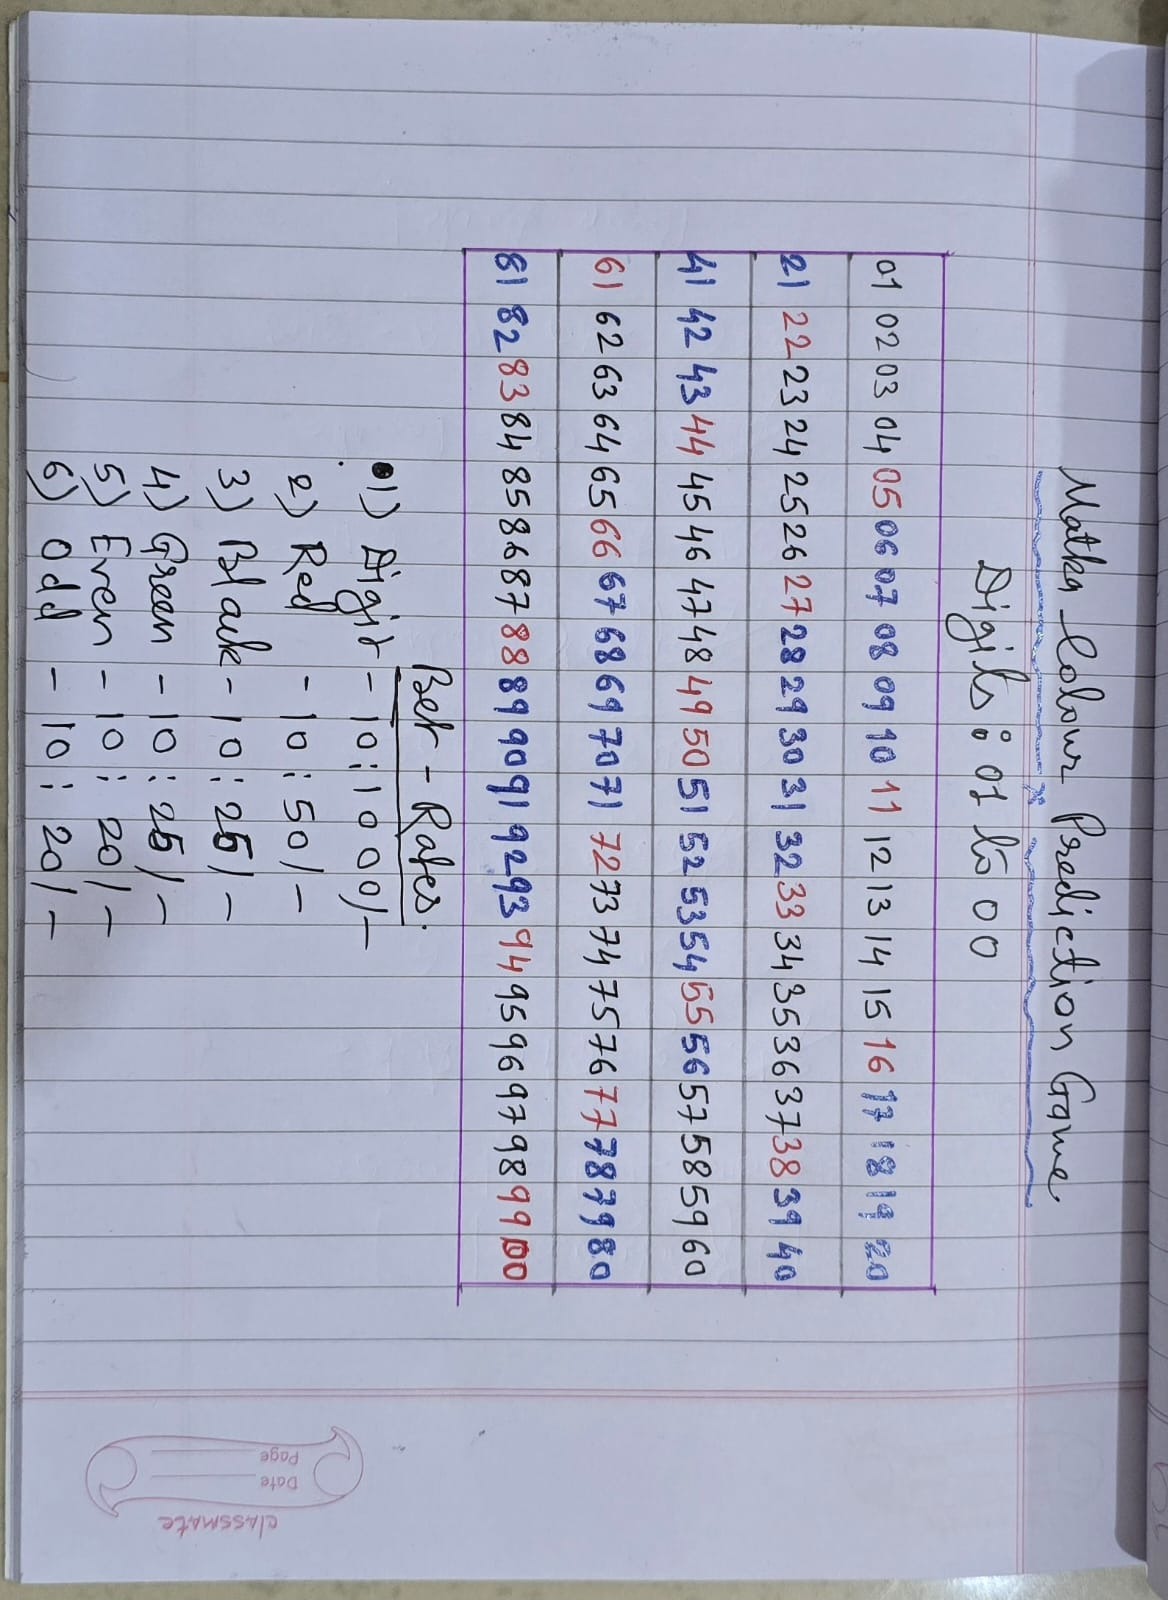 Maths Colour Prediction Game
Digits : 01 to 00
01 02 03 04 05 06 07 08 09 10 11 12 13 14 15 16 17 18 19 20
21 22 23 24 25 26 27 28 29 30 31 32 33 34 35 36 37 38 39 40
41 42 43 44 45 46 47 48 49 50 51 52 53 54 55 56 57 58 59 60
61 62 63 64 65 66 67 68 69 70 71 72 73 74 75 76 77 78 79 80
81 82 83 84 85 86 87 88 89 90 91 92 93 94 95 96 97 98 99 00
Bet - Rates.
1) Digit - 10:1000/-
2) Red - 10:50/-
3) Black - 10:25/-
4) Green - 10:25/-
5) Even - 10:20/-
6) Odd - 10:20/-
classmate
Date
Page